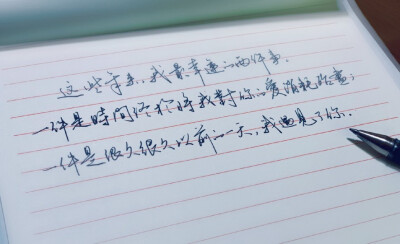 这些年来,我最幸运的两件事:
一件是時間终於将我對你的愛消耗殆盡;
一件是很久很久以前的一天,我遇見了你.